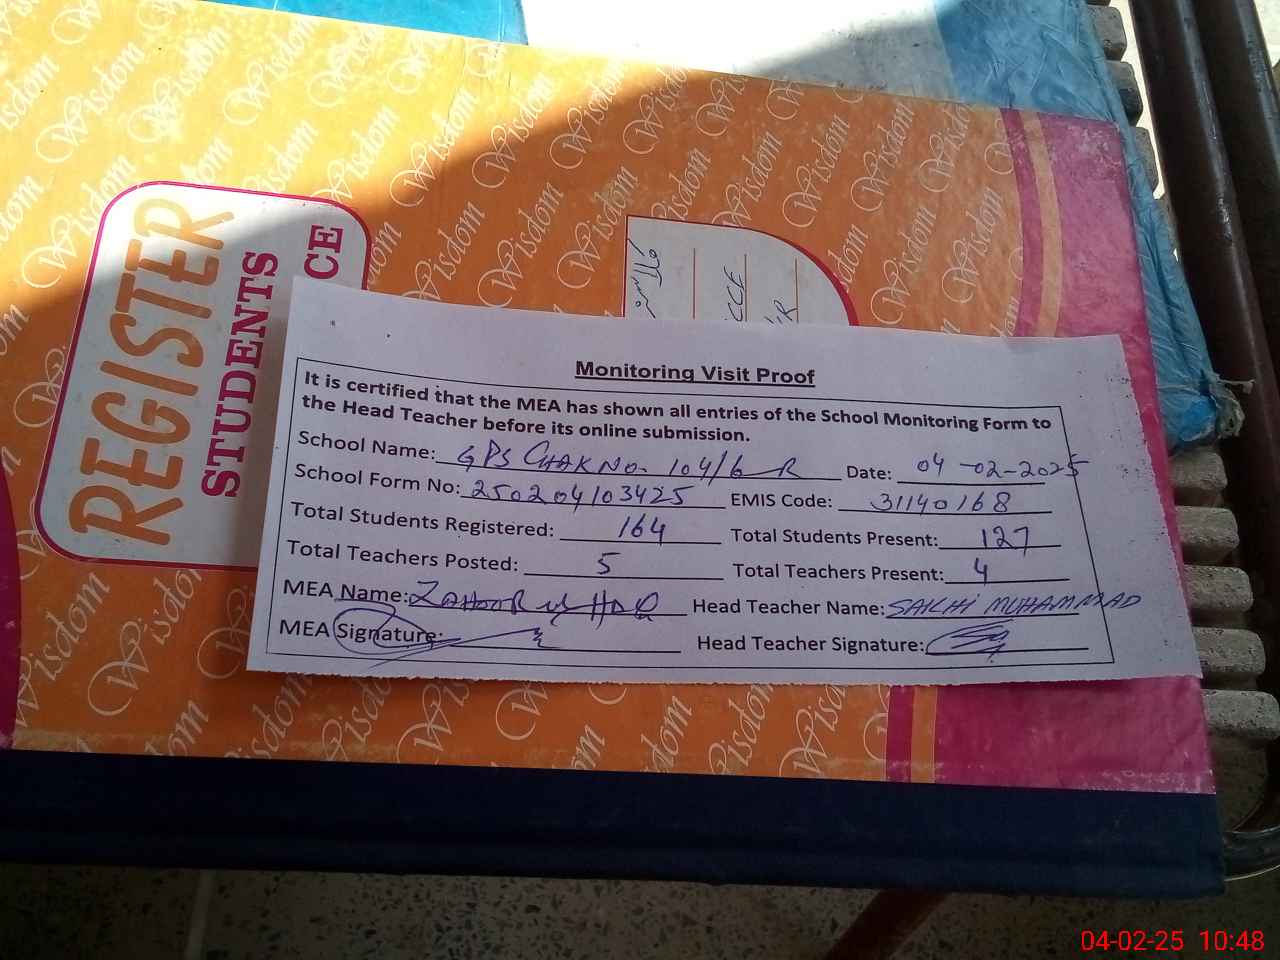 Wisdom
REGISTER
STUDENTS
CE
CCE
ER
Monitoring Visit Proof
It is certified that the MEA has shown all entries of the School Monitoring Form to
the Head Teacher before its online submission.
School Name: GPS CHAK NO. 104/6-R Date: 04-02-2025
School Form No: 250204103425 EMIS Code: 31140168
Total Students Registered: 164 Total Students Present: 127
Total Teachers Posted: 5 Total Teachers Present: 4
MEA Name: ZAHOOR ul HAQ Head Teacher Name: SAKHI MUHAMMAD
MEA Signature: Head Teacher Signature:
04-02-25 10:48